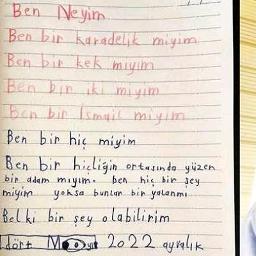 Ben Neyim
Ben bir karadelik miyim
Ben bir kek miyim
Ben bir iki miyim
Ben bir İsmail miyim
Ben bir hiç miyim
Ben bir hiçliğin ortasında yüzen
bir adam mıyım. Ben hiç bir şey
miyim yoksa bunlar bir yalanmı
Belki bir şey olabilirim
dört 2022 ayralık